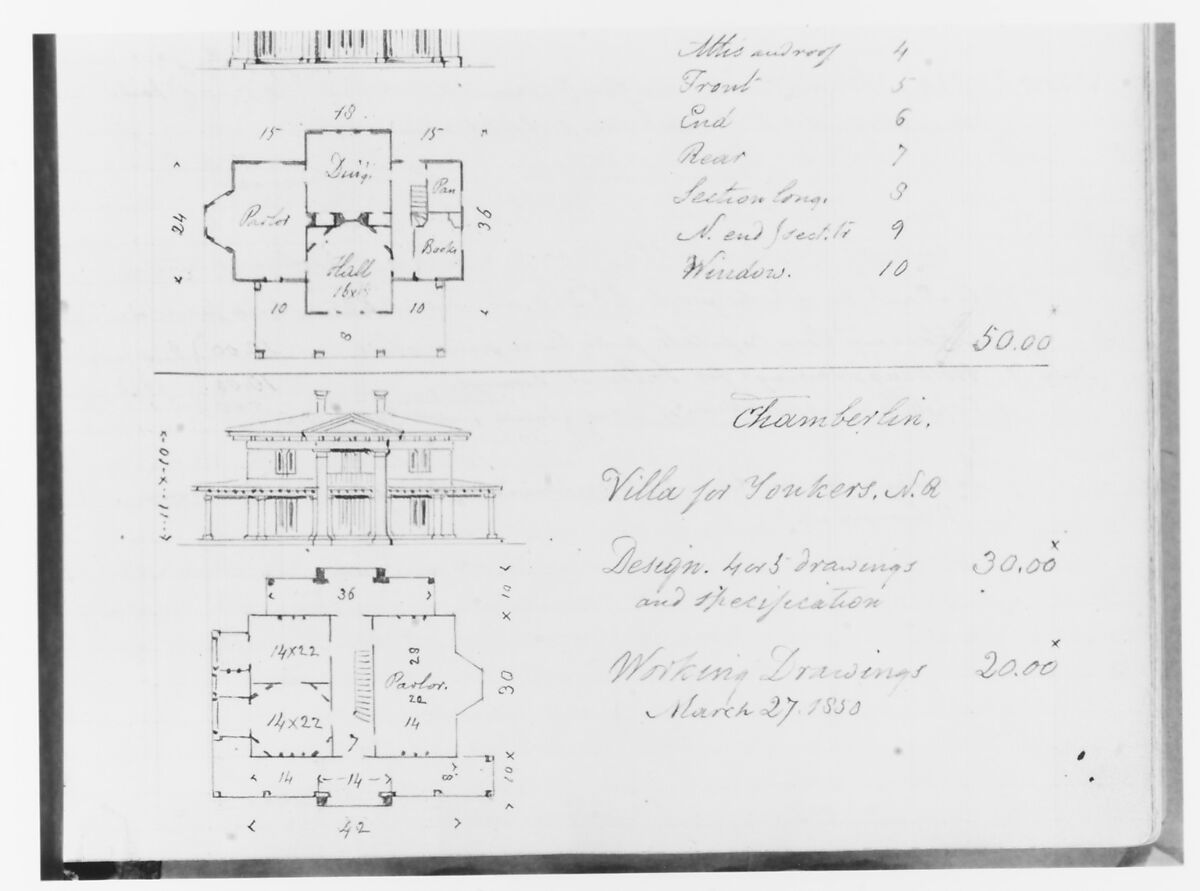 Attic and roof 4
Front 5
End 6
Rear 7
Section long. 8
N. end / sect. tr 9
Window. 10
50.00
18
15 15
Din'g.
Pan
Parlor
24
36
Books
Hall
10 10
8
Chamberlin.
Villa for Yonkers. N. R
Design. 4 or 5 drawings 30.00
and specification
Working Drawings 20.00
March 27. 1850
11 x 10
36
x 10
14x22
28
Parlor.
22
14
30
14x22
7
14
14
8
10 x
42